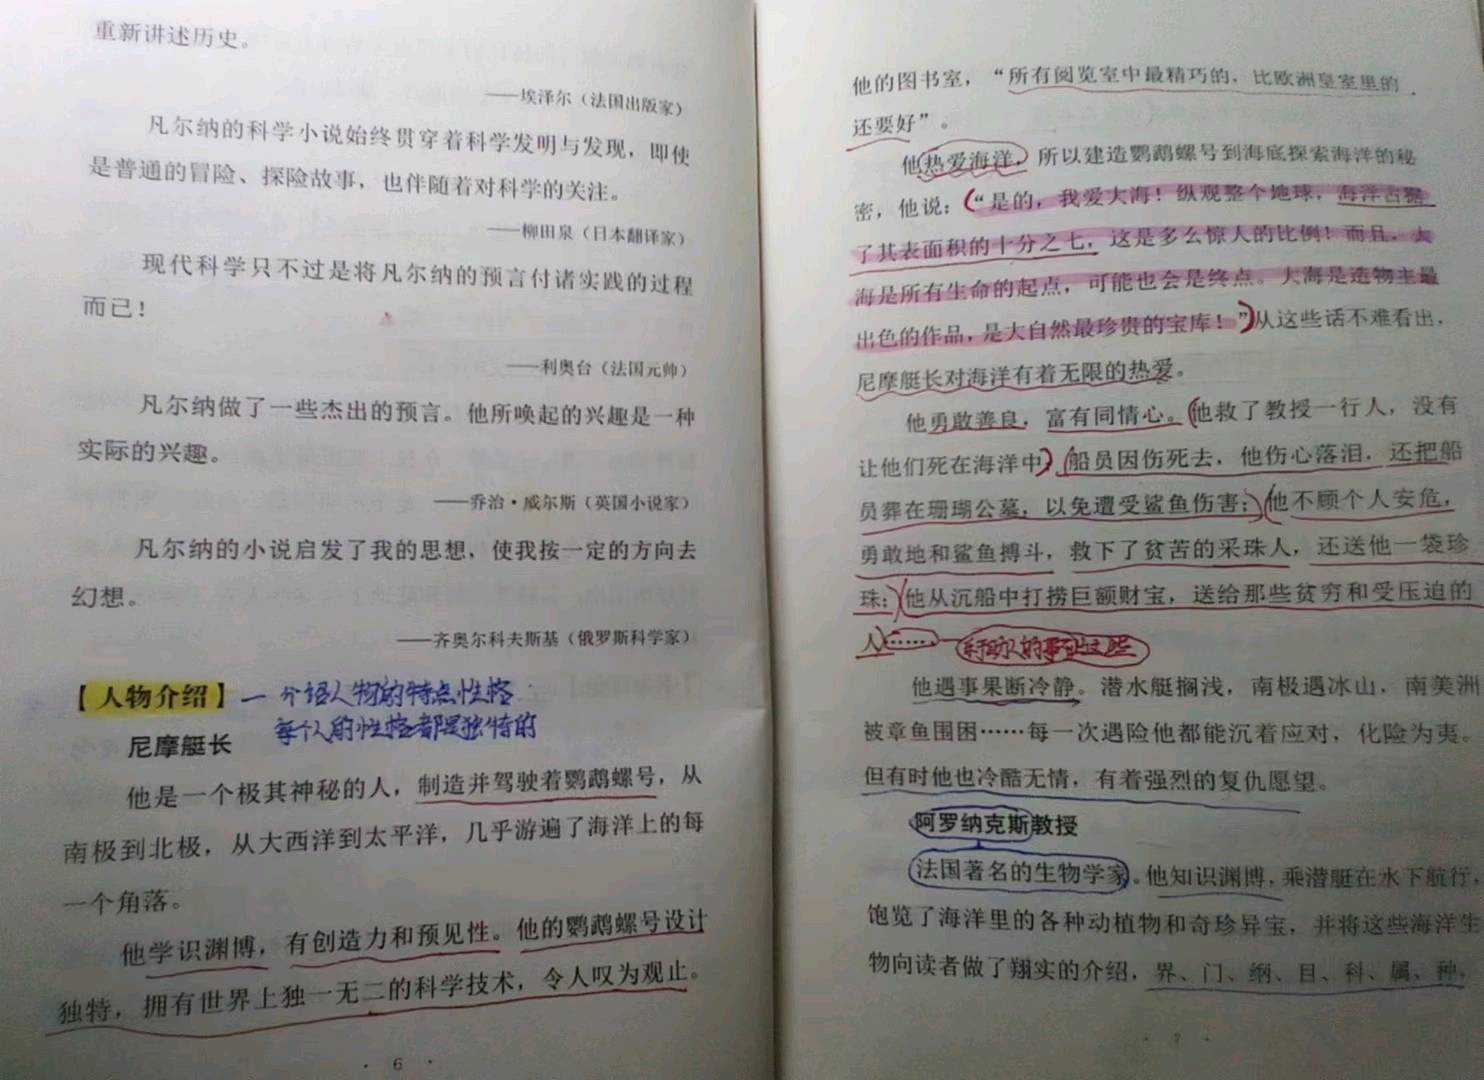 重新讲述历史。
——埃泽尔（法国出版家）
凡尔纳的科学小说始终贯穿着科学发明与发现，即使
是普通的冒险、探险故事，也伴随着对科学的关注。
——柳田泉（日本翻译家）
现代科学只不过是将凡尔纳的预言付诸实践的过程
而已！
——利奥台（法国元帅）
凡尔纳做了一些杰出的预言。他所唤起的兴趣是一种
实际的兴趣。
——乔治·威尔斯（英国小说家）
凡尔纳的小说启发了我的思想，使我按一定的方向去
幻想。
——齐奥尔科夫斯基（俄罗斯科学家）
【人物介绍】一介绍人物的特点性格
每个人的性格都是独特的
尼摩艇长
他是一个极其神秘的人，制造并驾驶着鹦鹉螺号，从
南极到北极，从大西洋到太平洋，几乎游遍了海洋上的每
一个角落。
他学识渊博，有创造力和预见性。他的鹦鹉螺号设计
独特，拥有世界上独一无二的科学技术，令人叹为观止。
· 6 ·
他的图书室，“所有阅览室中最精巧的，比欧洲皇室里的
还要好”。
他热爱海洋，所以建造鹦鹉螺号到海底探索海洋的秘
密，他说：“是的，我爱大海！纵观整个地球，海洋占据
了其表面积的十分之七，这是多么惊人的比例！而且，大
海是所有生命的起点，可能也会是终点。大海是造物主最
出色的作品，是大自然最珍贵的宝库！”从这些话不难看出，
尼摩艇长对海洋有着无限的热爱。
他勇敢善良，富有同情心。他救了教授一行人，没有
让他们死在海洋中；船员因伤死去，他伤心落泪，还把船
员葬在珊瑚公墓，以免遭受鲨鱼伤害；他不顾个人安危，
勇敢地和鲨鱼搏斗，救下了贫苦的采珠人，还送他一袋珍
珠；他从沉船中打捞巨额财宝，送给那些贫穷和受压迫的
人……
他遇事果断冷静。潜水艇搁浅，南极遇冰山，南美洲
被章鱼围困……每一次遇险他都能沉着应对，化险为夷。
但有时他也冷酷无情，有着强烈的复仇愿望。
阿罗纳克斯教授
法国著名的生物学家。他知识渊博，乘潜艇在水下航行，
饱览了海洋里的各种动植物和奇珍异宝，并将这些海洋生
物向读者做了翔实的介绍，界、门、纲、目、科、属、种，
· 7 ·